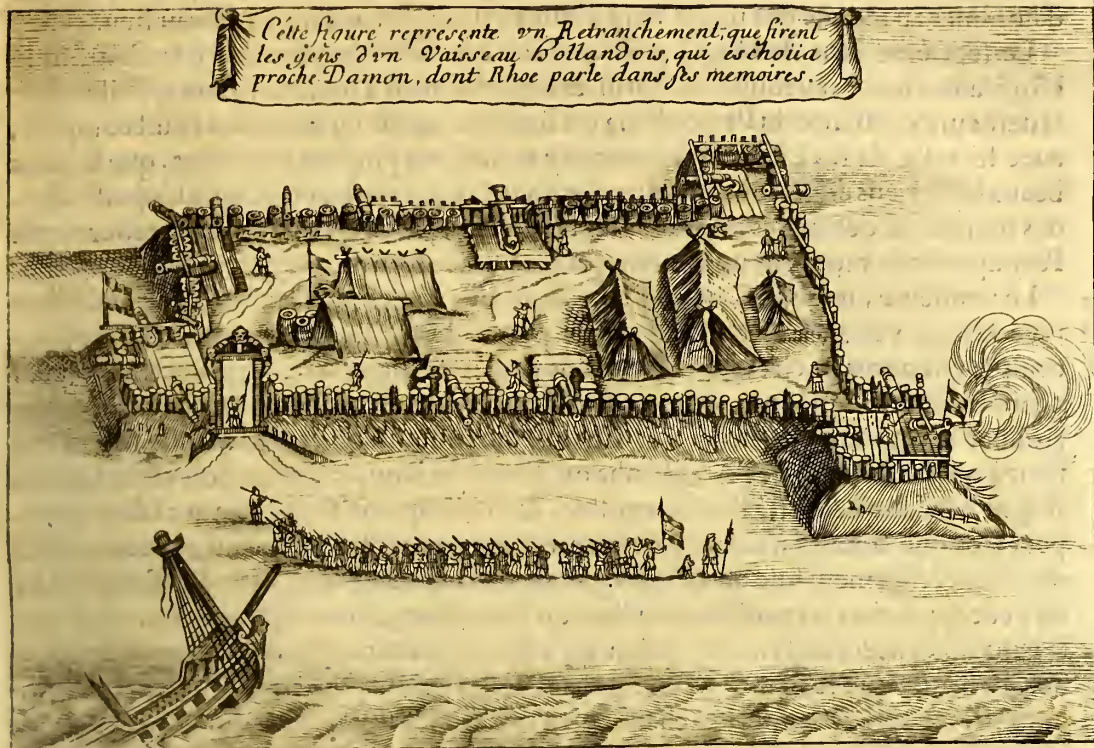 Cette figure représente vn Retranchement, que firent
les gens d'vn Vaisseau Hollandois, qui eschoüa
proche Damon, dont Rhoe parle dans ses memoires.